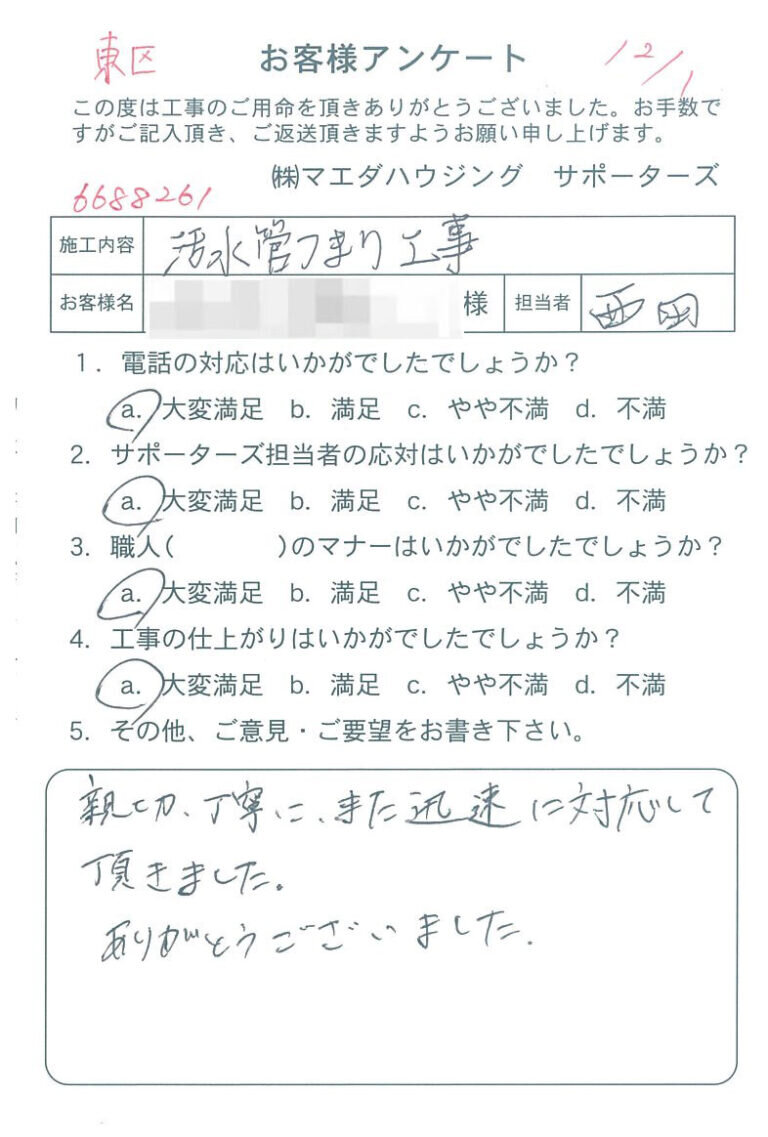 東区 お客様アンケート 12/1
この度は工事のご用命を頂きありがとうございました。お手数で
すがご記入頂き、ご返送頂きますようお願い申し上げます。
㈱マエダハウジング サポーターズ
6688261
施工内容 汚水管つまり工事
お客様名 様 担当者 西岡
1. 電話の対応はいかがでしたでしょうか？
a. 大変満足 b. 満足 c. やや不満 d. 不満
2. サポーターズ担当者の応対はいかがでしたでしょうか？
a. 大変満足 b. 満足 c. やや不満 d. 不満
3. 職人( )のマナーはいかがでしたでしょうか？
a. 大変満足 b. 満足 c. やや不満 d. 不満
4. 工事の仕上がりはいかがでしたでしょうか？
a. 大変満足 b. 満足 c. やや不満 d. 不満
5. その他、ご意見・ご要望をお書き下さい。
親切、丁寧に、また迅速に対応して
頂きました。
ありがとうございました.